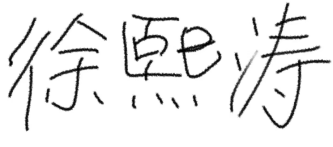 徐熙涛